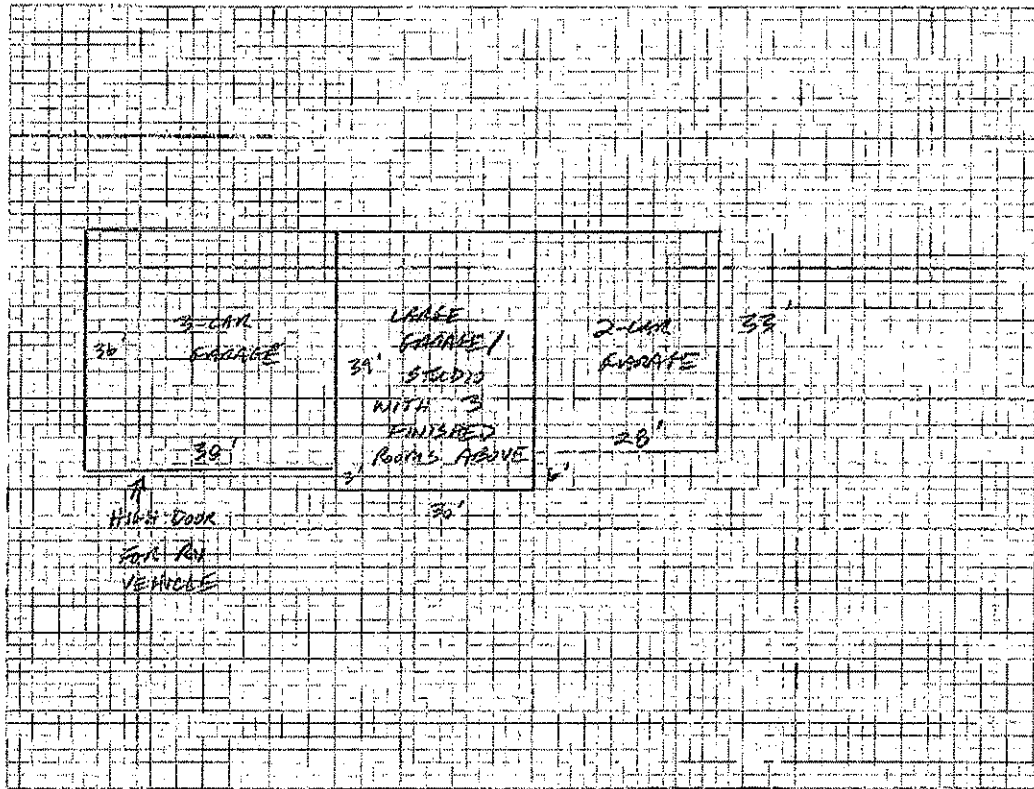 3-CAR
GARAGE
36'
38'
LARGE
GARAGE/
39'
STUDIO
WITH 3
FINISHED
ROOMS ABOVE
3'
30'
2-CAR
GARAGE
33'
28'
6'
↑
HIGH DOOR
FOR RV
VEHICLE